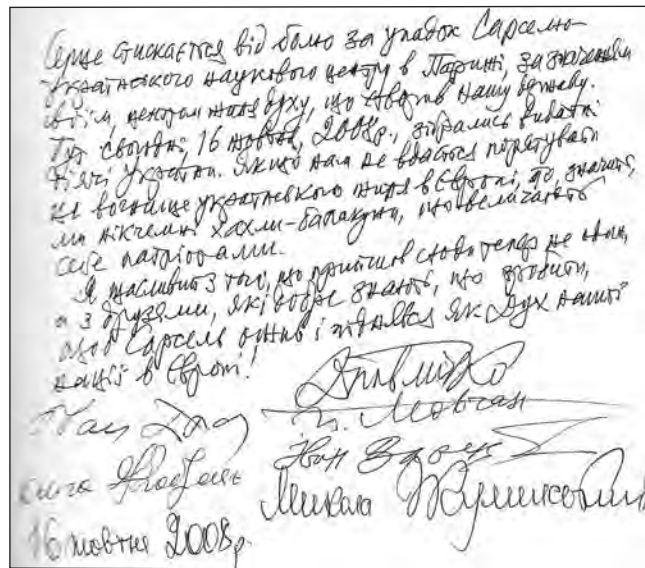 Серце стискається від болю за упадок Сарсель-
українського наукового центру в Парижі, за значенням
своїм, центром життя духу, що створив нашу державу.
Тут сьогодні, 16 жовтня, 2008р., зібрались видатні
діячі України. Якщо нам не вдасться порятувати
це вогнище українського життя в Європі, то, значить,
ми нікчемні хахли-балакуни, що величають
себе патріотами.
Я щасливий з того, що прийшов сюди тепер не один,
а з друзями, які добре знають, що зробити,
щоб Сарсель ожив і піднявся як Дух нашої
нації в Європі!
Дпавличко
П. Мовчан
Іван Драч
Микола Жулинський
16 жовтня 2008р.